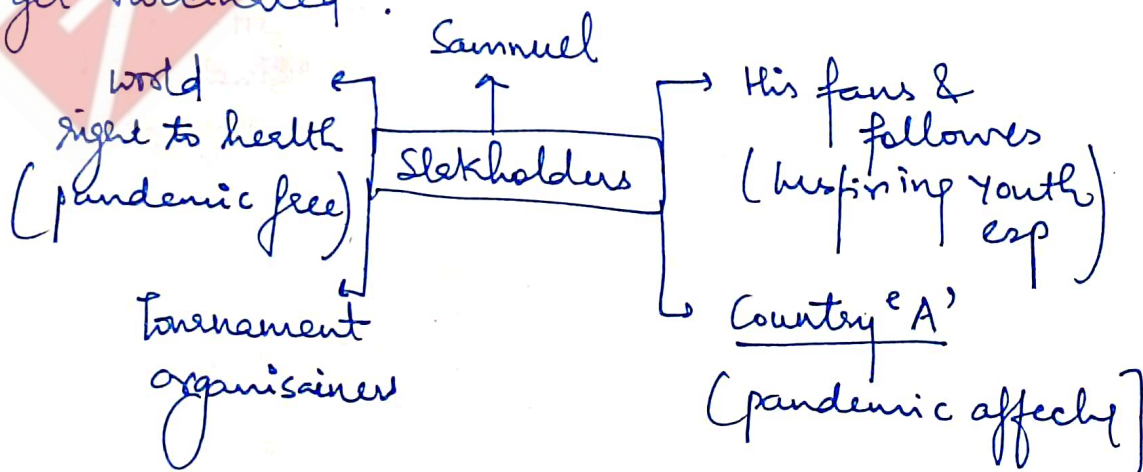 get vaccinated.
Samnuel
world
right to health
(pandemic free)
Stekholders
His fans &
followres
(Inspiring youth
esp)
Tournament
organisainers
Country 'A'
(pandemic affectey]